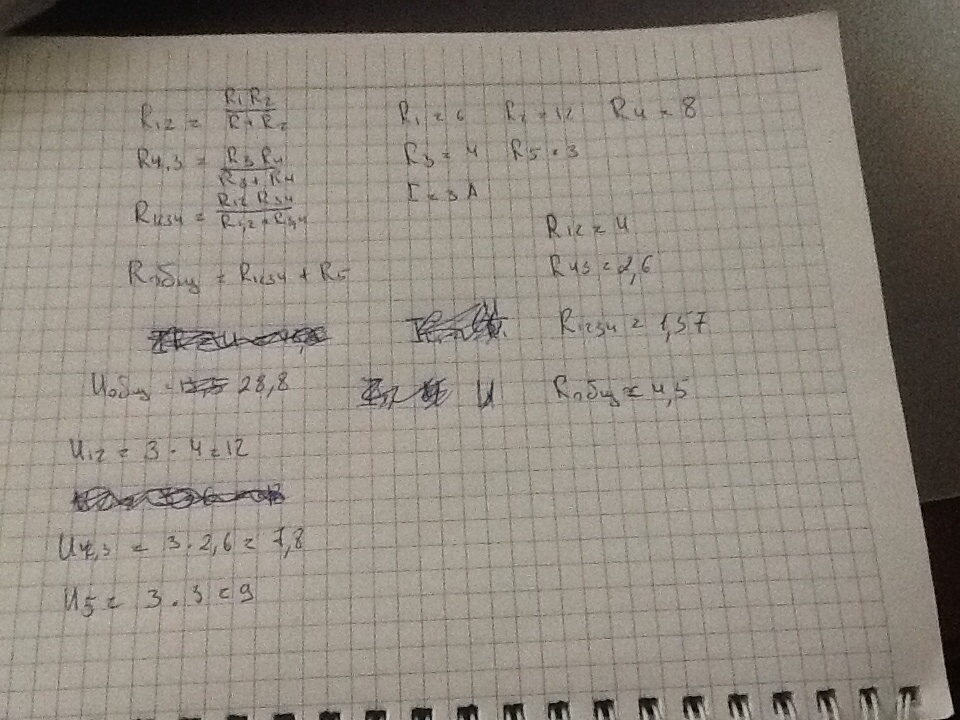 R₁₂ = R₁R₂ / R₁+R₂
R₄,₃ = R₃R₄ / R₃+R₄
R₁₂₃₄ = R₁₂R₃₄ / R₁,₂+R₃,₄
Rобщ = R₁₂₃₄ + R₅
Uобщ = 28,8
U₁₂ = 3 · 4 = 12
U₄,₃ = 3 · 2,6 = 7,8
U₅ = 3 · 3 = 9
R₁ = 6 R₂ = 12 R₄ = 8
R₃ = 4 R₅ = 3
I = 3 А
R₁₂ = 4
R₄₃ = 2,6
R₁₂₃₄ = 1,57
U Rобщ = 4,5